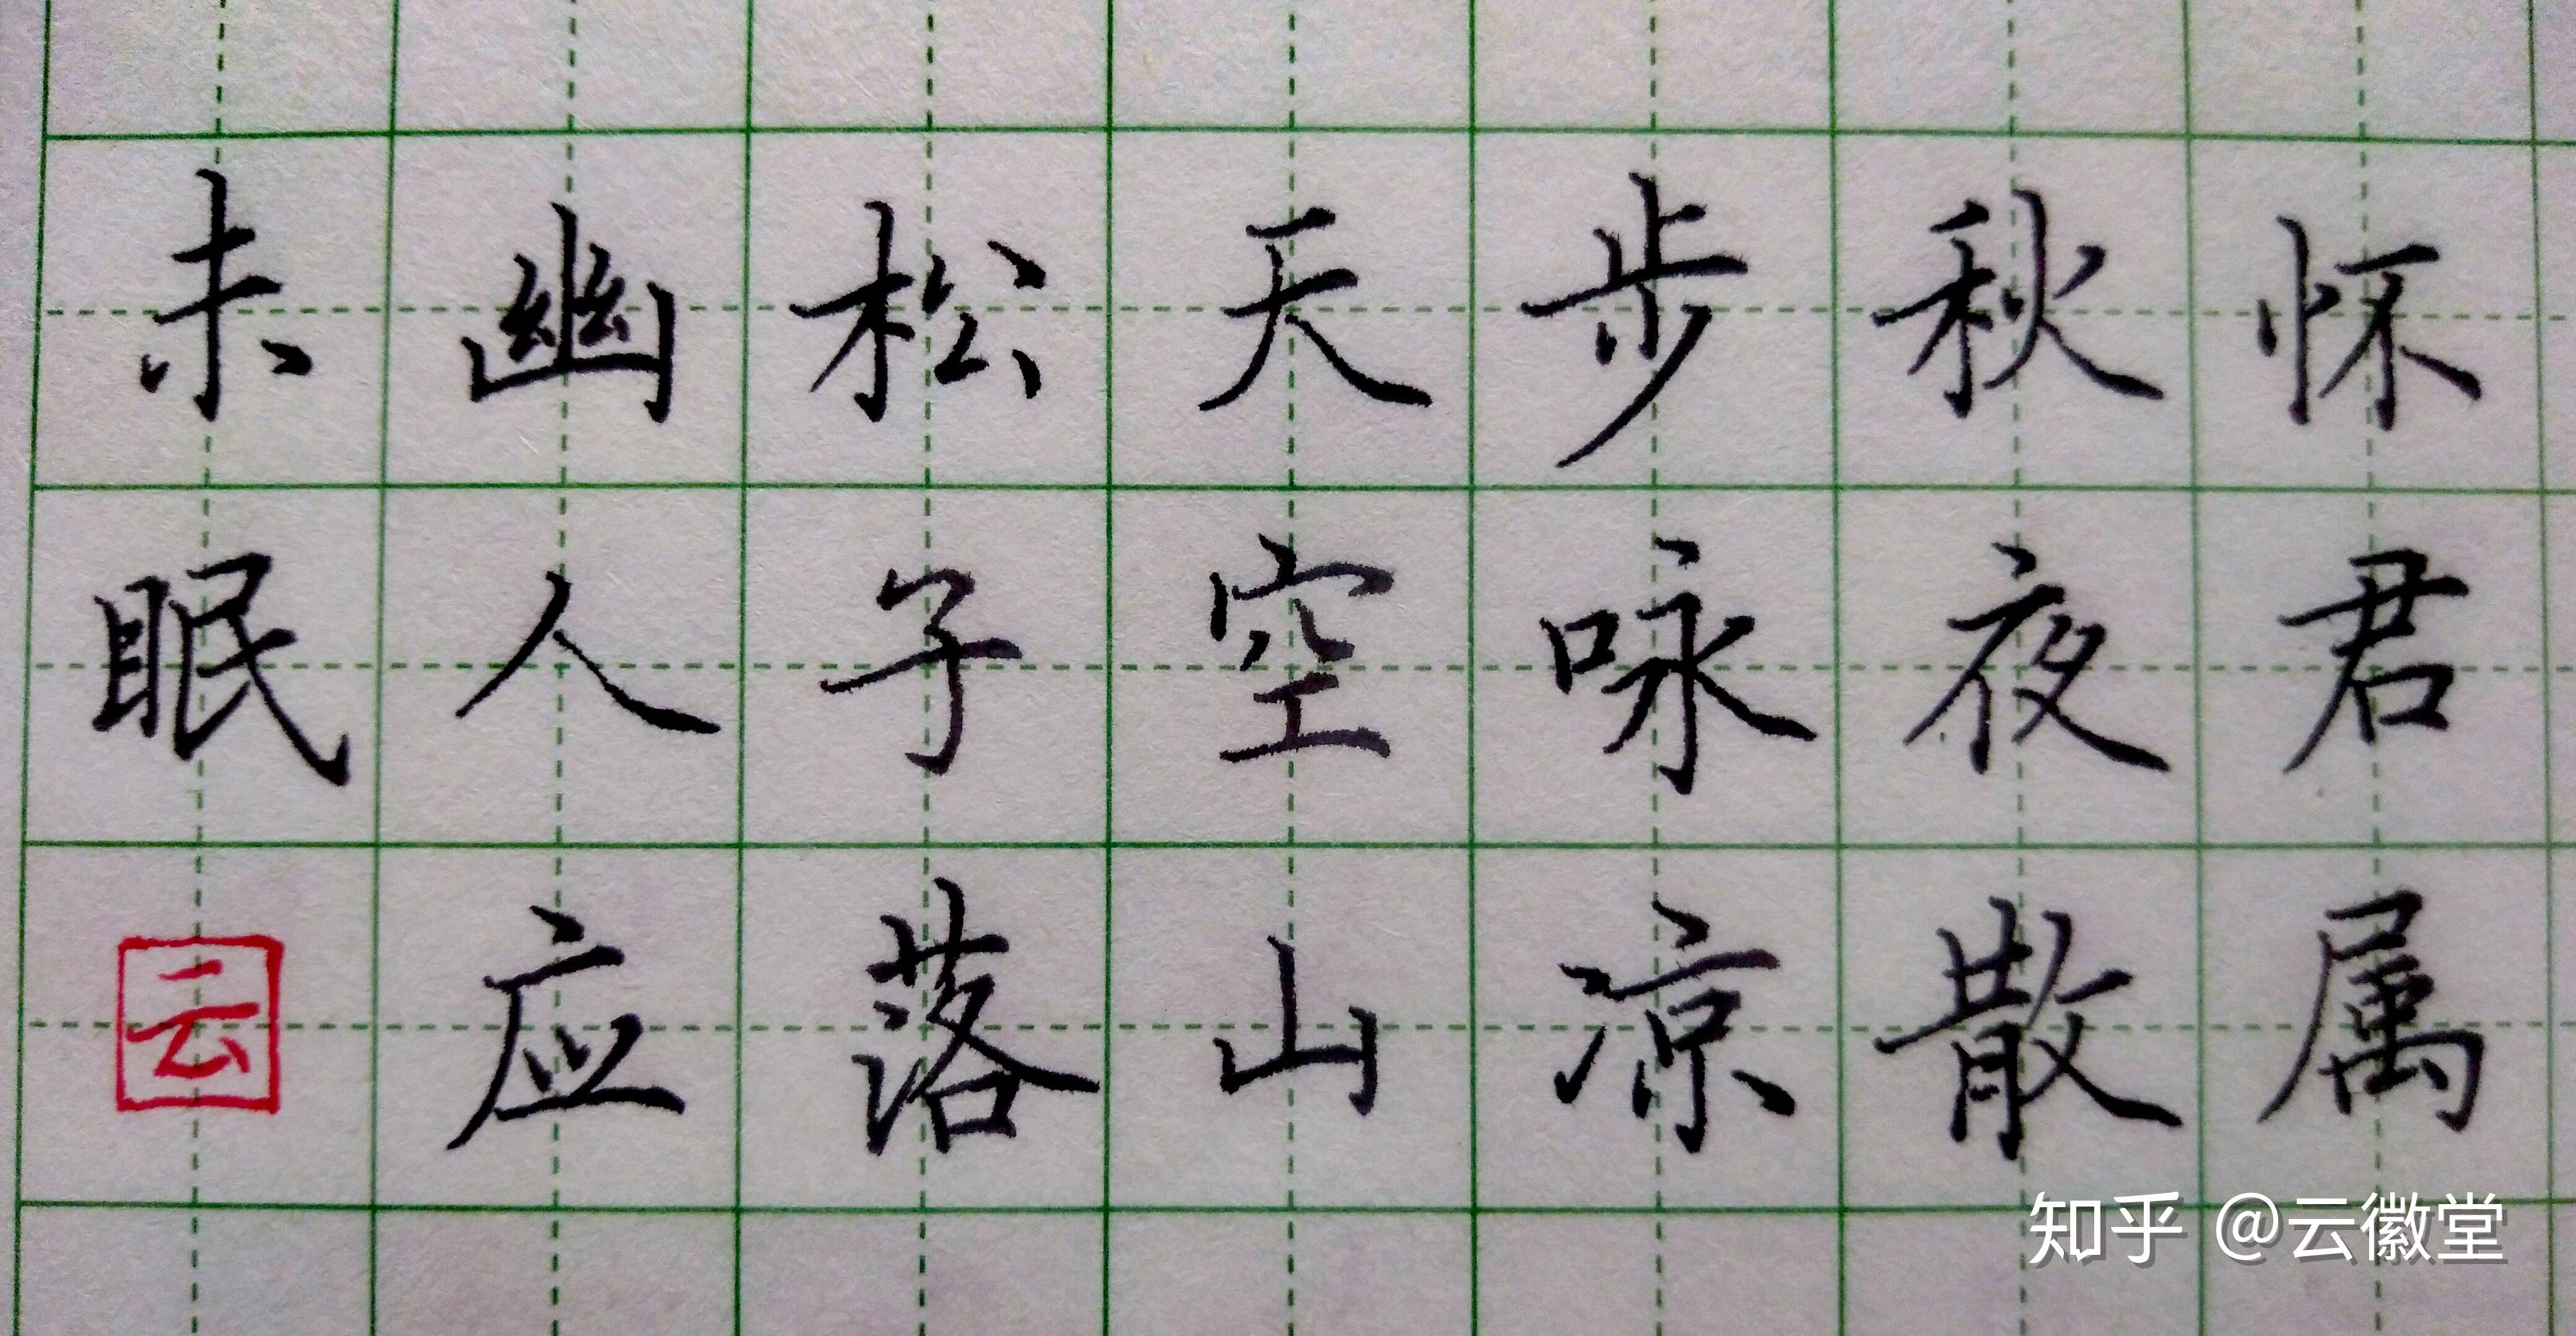 怀君属
秋夜散
步咏凉
天空山
松子落
幽人应
未眠云
知乎 @云徽堂